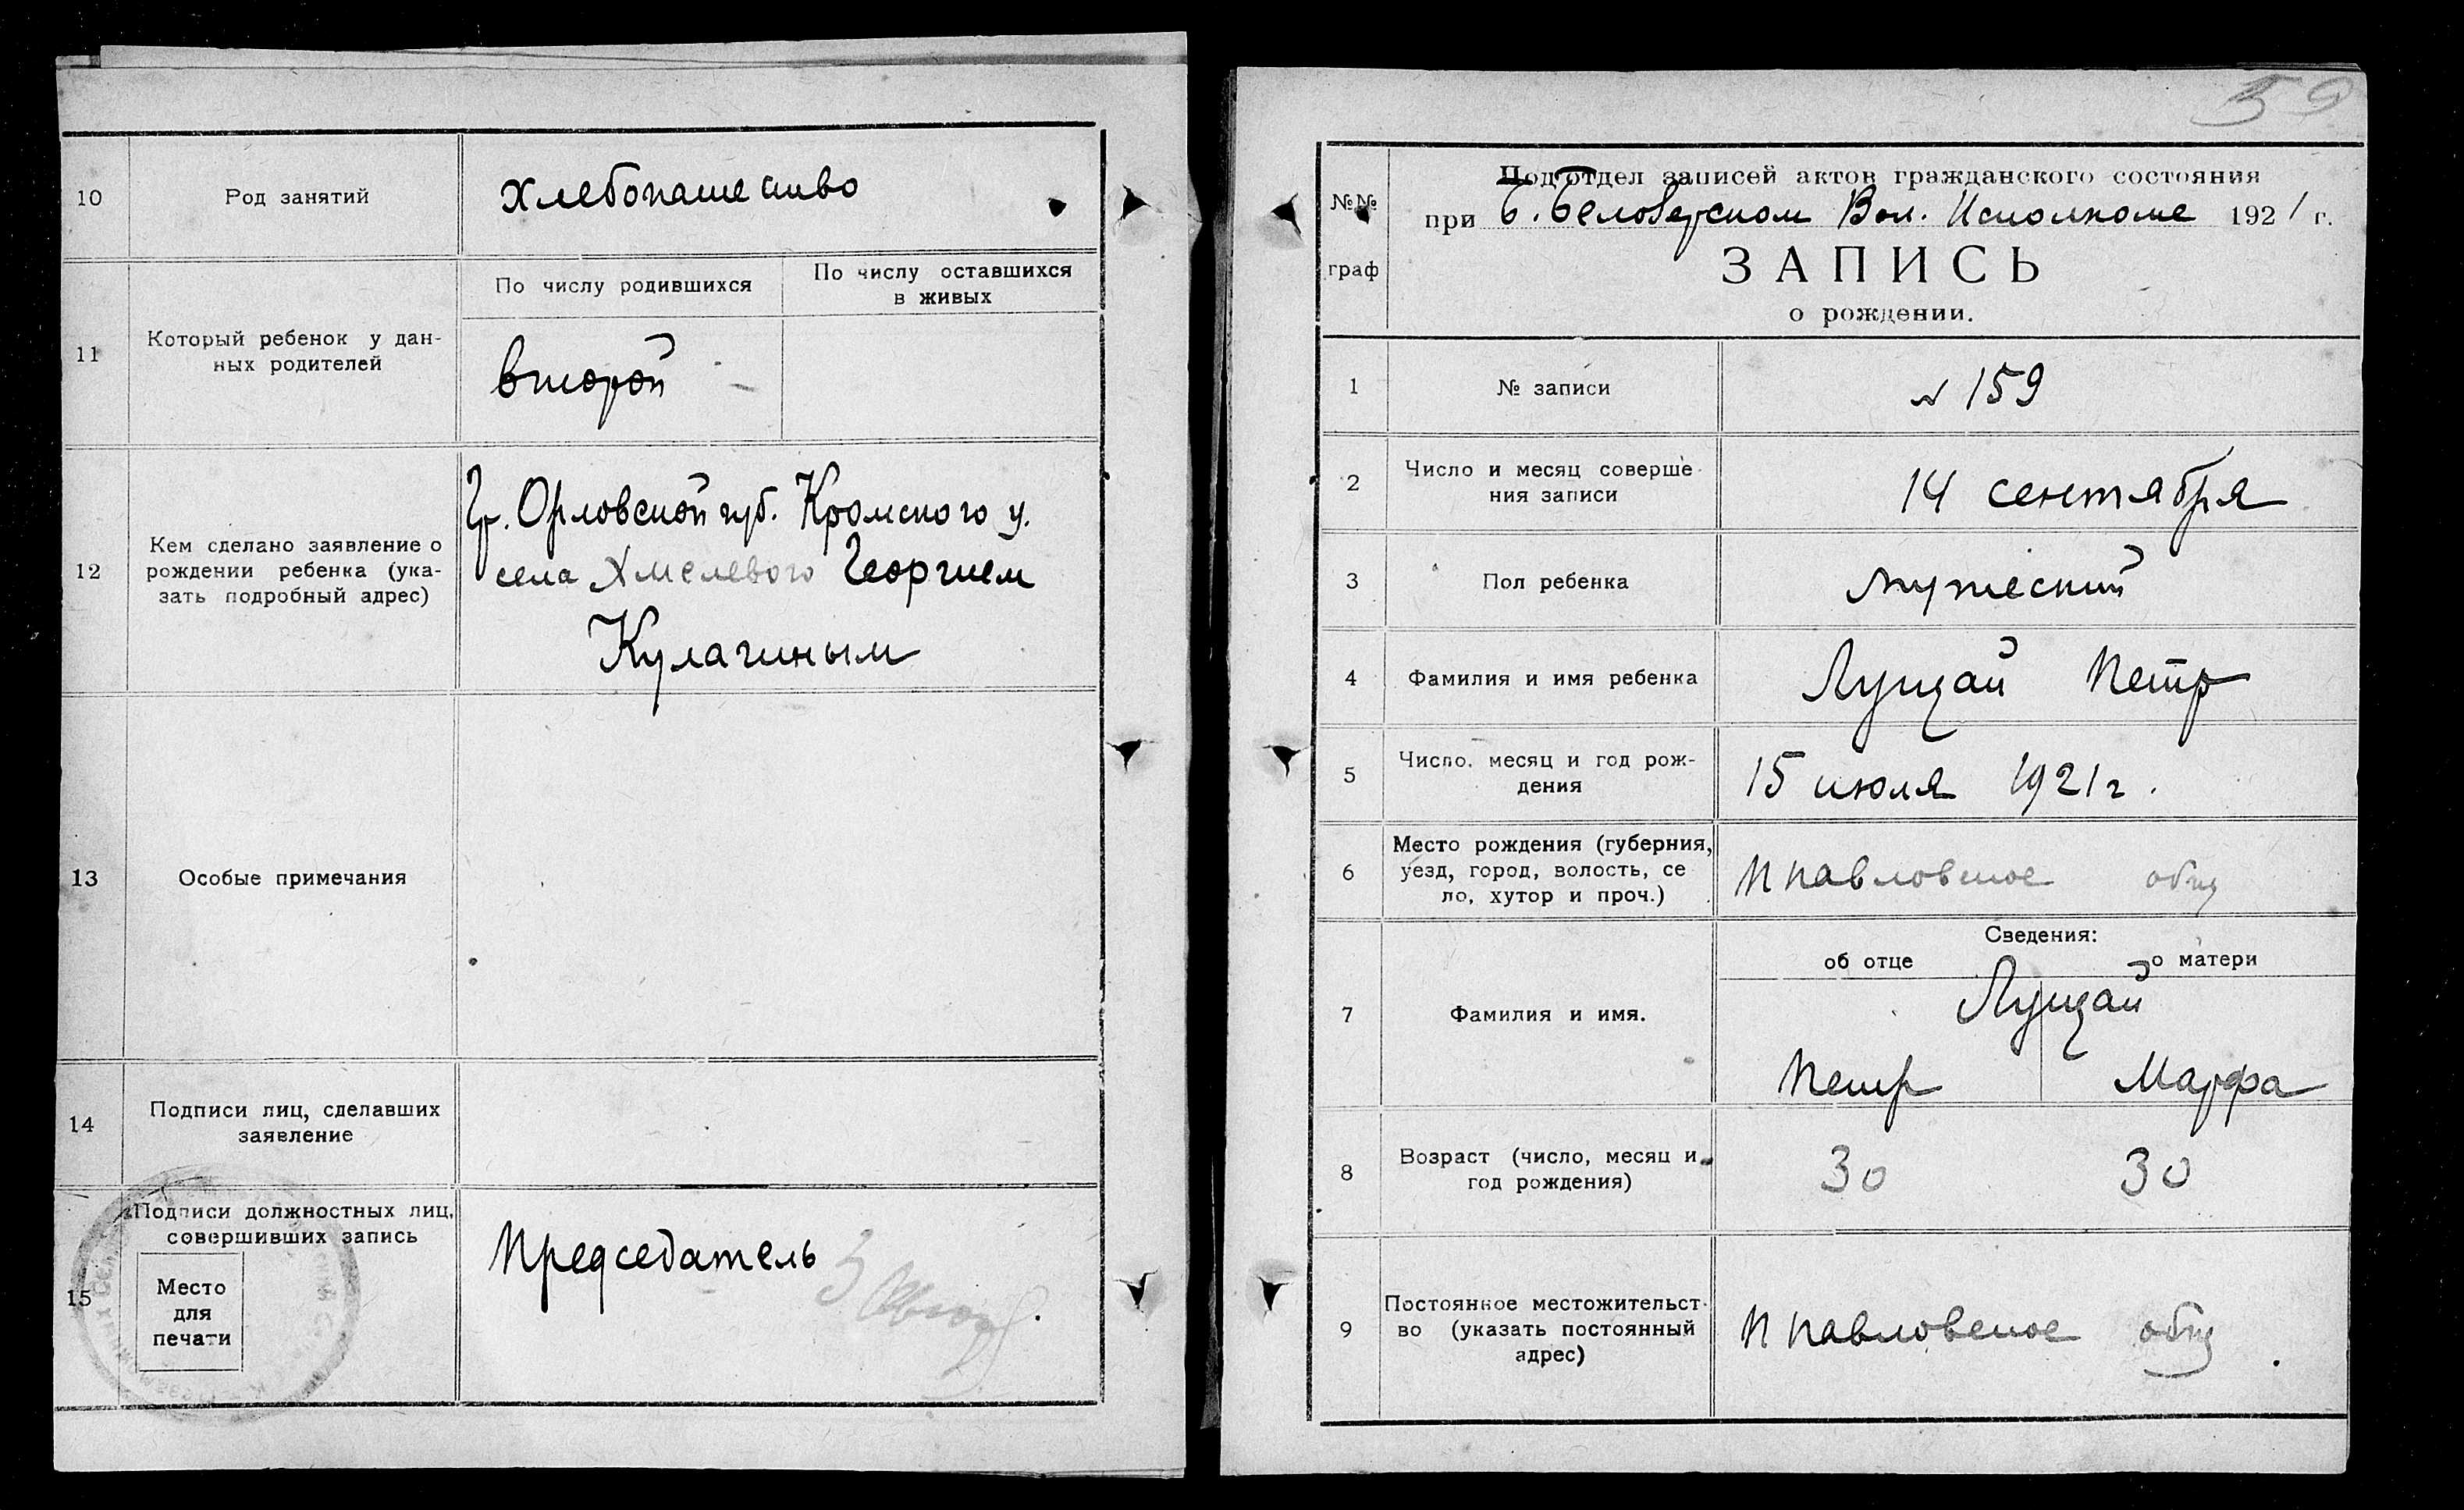 10
Род занятий
Хлебопашество
11
Который ребенок у дан-
ных родителей
По числу родившихся
По числу оставшихся
в живых
второй
12
Кем сделано заявление о
рождении ребенка (ука-
зать подробный адрес)
Гр. Орловской губ. Кромского у.
села Хмелевого Георгием
Кулагиным
13
Особые примечания
14
Подписи лиц, сделавших
заявление
15
Подписи должностных лиц,
совершивших запись
Место
для
печати
Председатель
59
№№
граф
Подотдел записей актов гражданского состояния
при Б. Беловерском Вол. Исполкоме 1921 г.
ЗАПИСЬ
о рождении.
1
№ записи
№ 159
2
Число и месяц соверше
ния записи
14 сентября
3
Пол ребенка
мужеский
4
Фамилия и имя ребенка
Лущай Петр
5
Число, месяц и год рож-
дения
15 июля 1921 г.
6
Место рождения (губерния,
уезд, город, волость, се
ло, хутор и проч.)
П павловское общ
Сведения:
об отце
о матери
7
Фамилия и имя.
Лущай
Петр
Марфа
8
Возраст (число, месяц и
год рождения)
30
30
9
Постоянное местожительст-
во (указать постоянный
адрес)
П павловское общ.